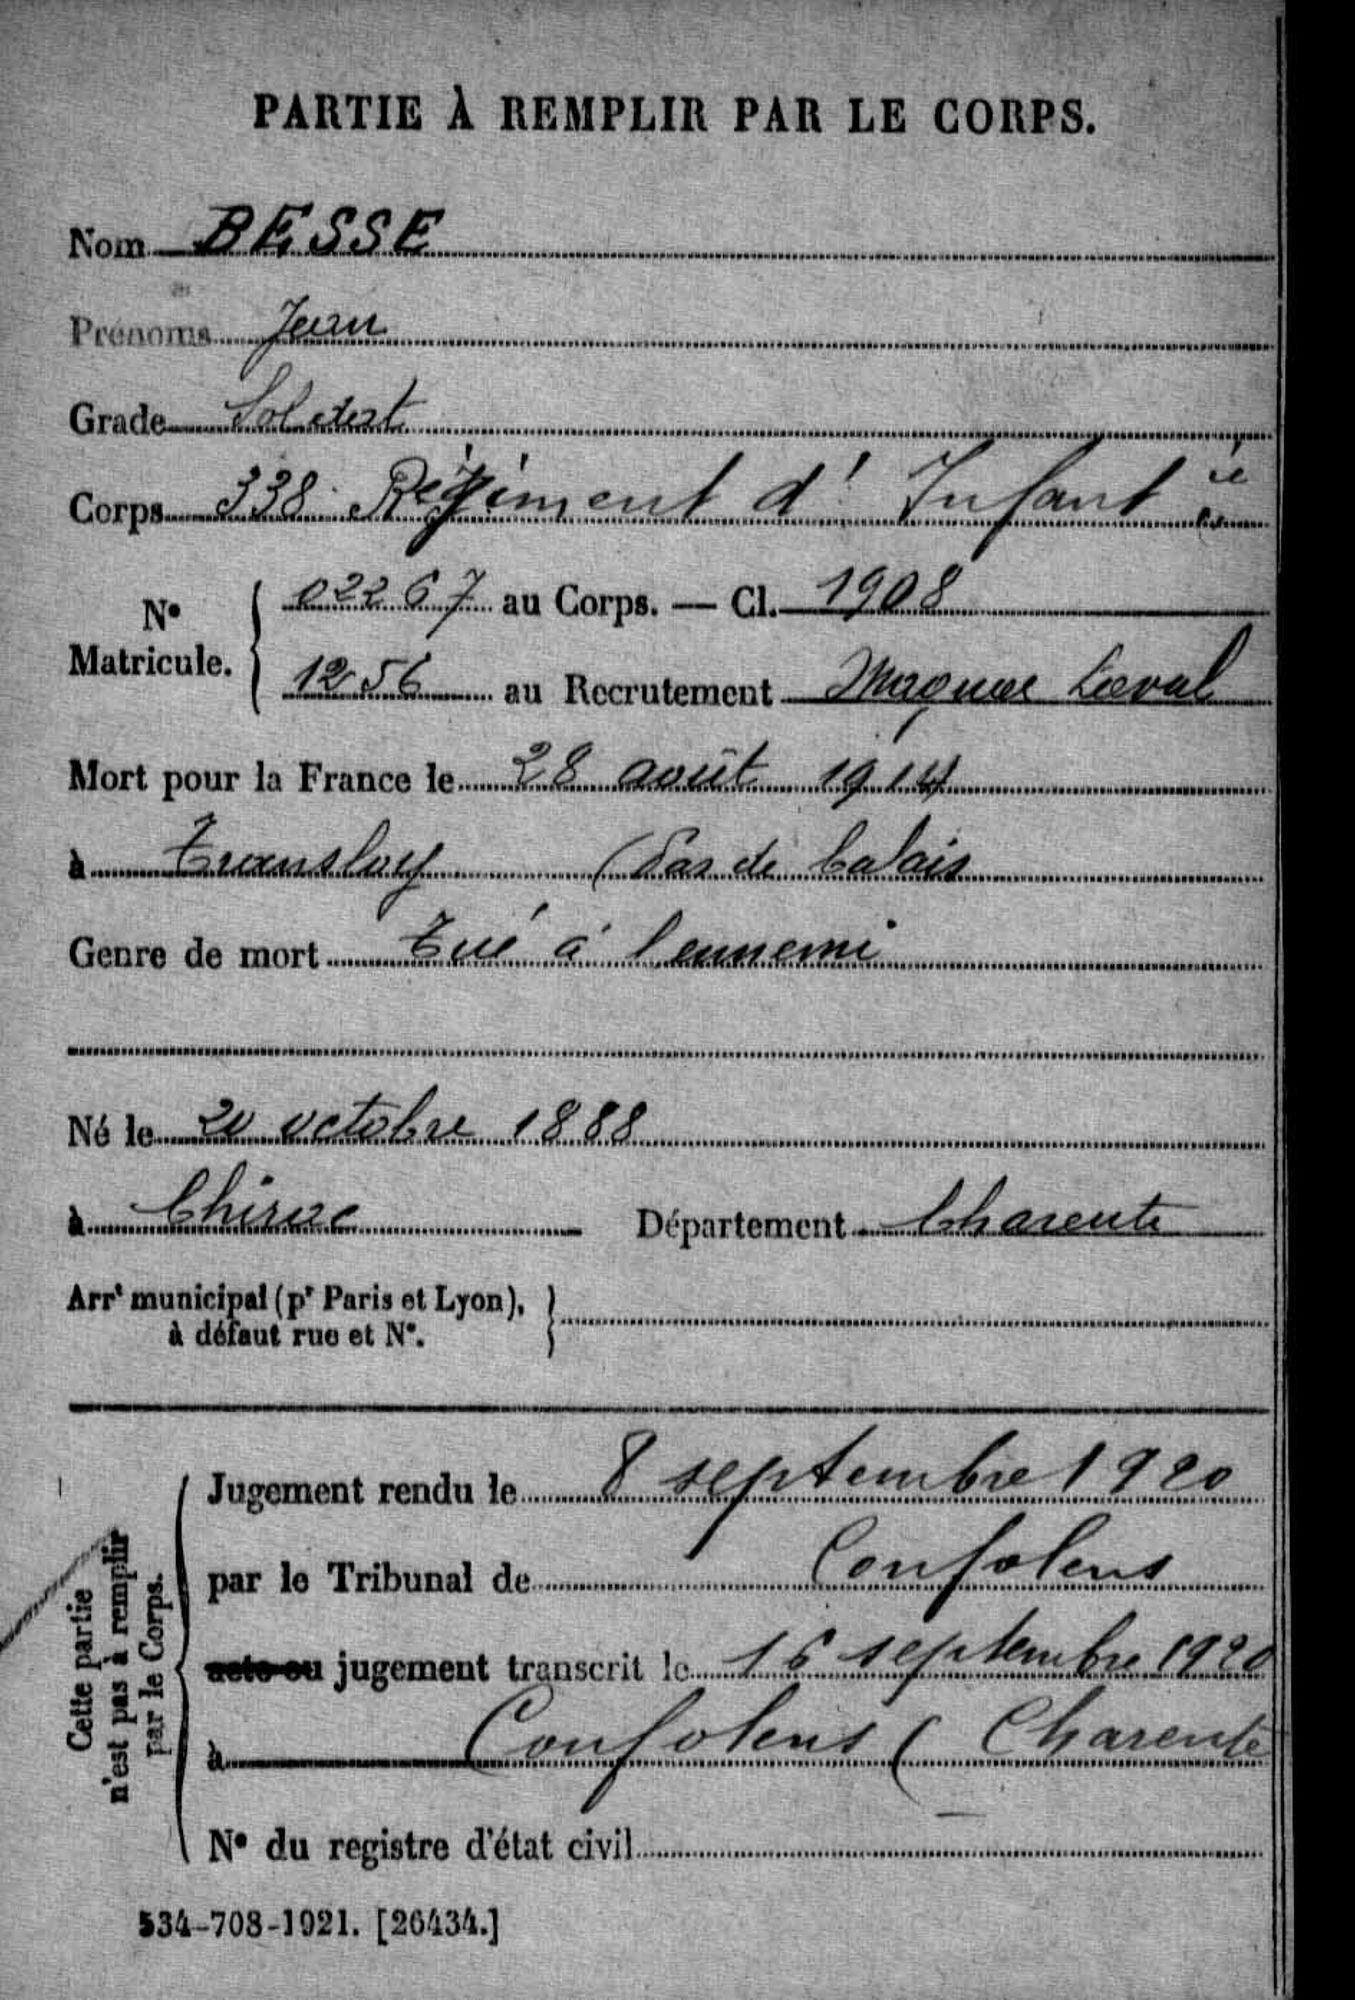 PARTIE À REMPLIR PAR LE CORPS.
Nom BESSE
Prénoms Jean
Grade Soldat
Corps 338 Régiment d' Infant ie
N° Matricule. { 02267 au Corps. — Cl. 1908
1256 au Recrutement Magnac Laval
Mort pour la France le 28 août 1914
à Transloy (Pas de Calais
Genre de mort Tué à l'ennemi
Né le 20 octobre 1888
à Chirac Département Charente
Arrt municipal (pr Paris et Lyon),
à défaut rue et N°.
Cette partie
n'est pas à remplir
par le Corps.
Jugement rendu le 8 septembre 1920
par le Tribunal de Confolens
acte ou jugement transcrit le 16 septembre 1920
à Confolens ( Charente
N° du registre d'état civil
534-708-1921. [26434.]